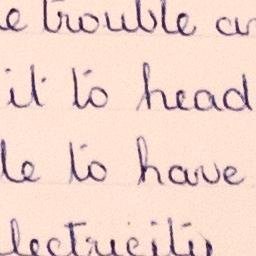 e trouble an
it to head
le to have
lectricity